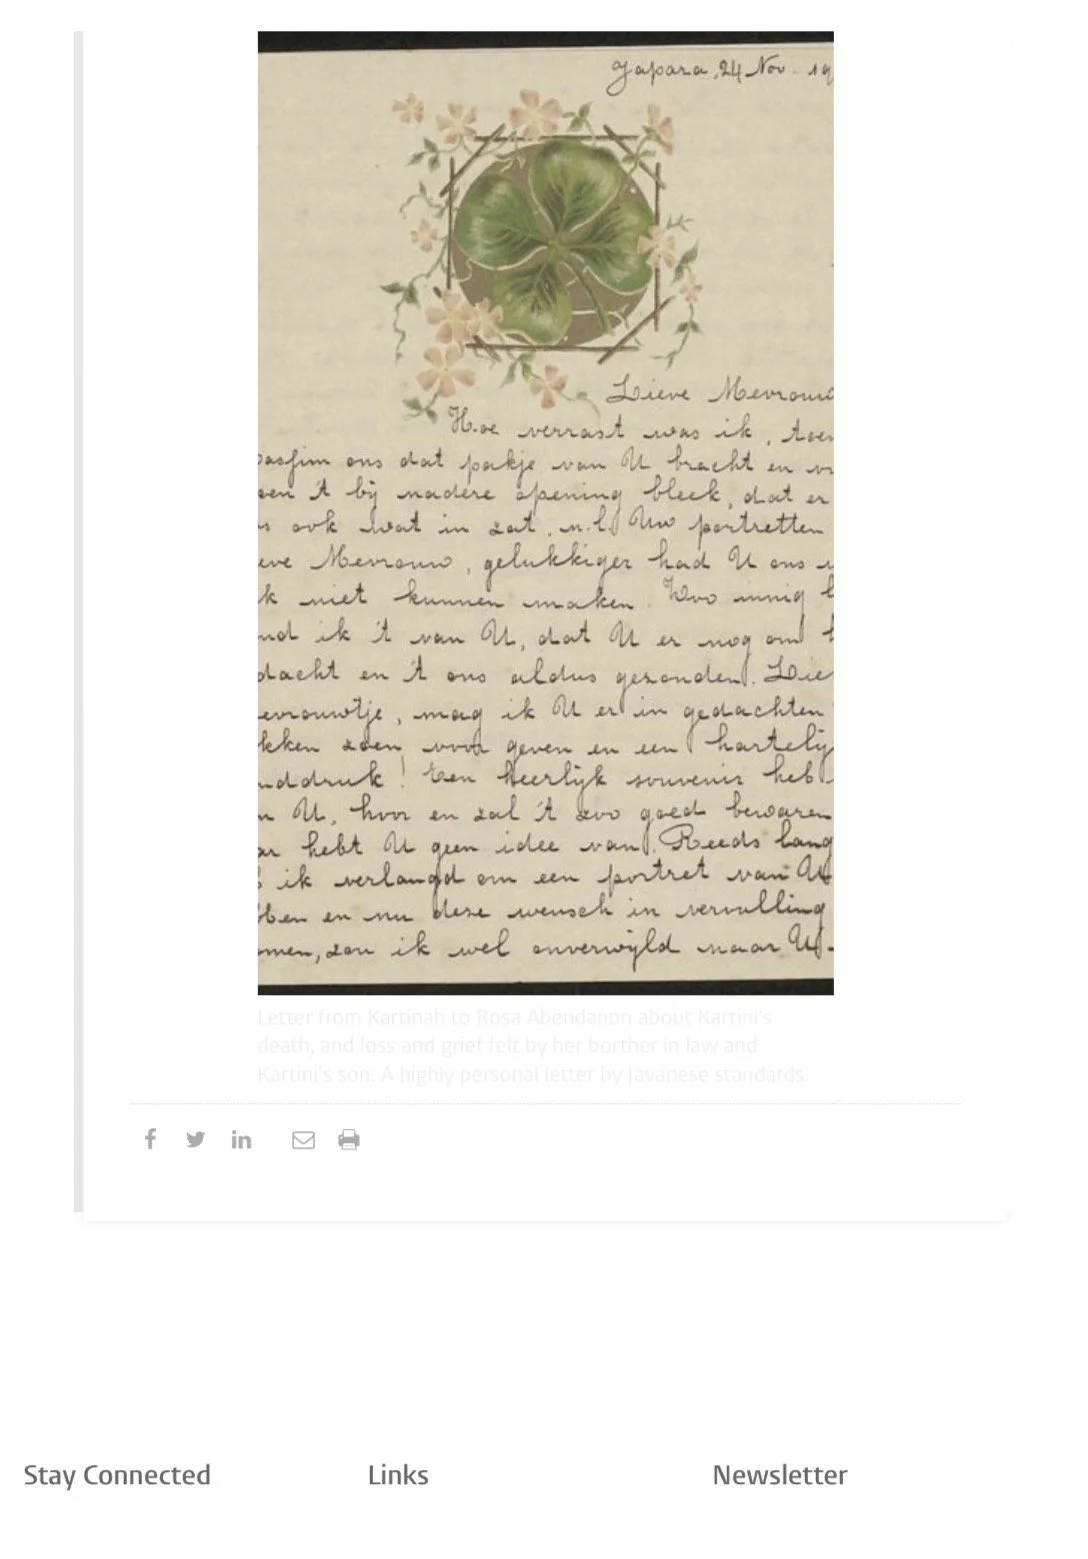 Japara, 24 Nov. 19
Lieve Mevrouw
Hoe verrast was ik, toen
ons dat pakje van U bracht en
't bij nadere opening bleek, dat er
ook wat in zat, n.l. Uw portretten
Mevrouw, gelukkiger had U ons
niet kunnen maken. Zoo innig
ik 't van U, dat U er nog om
dacht en 't ons aldus gezonden. Lie
evrouwtje, mag ik U er in gedachten
kken zoen voor geven en een hartelij
nddruk! Een heerlijk souvenir heb
n U, hoor en zal 't zoo goed bewaren
ar hebt U geen idee van. Reeds lang
ik verlangd om een portret van U
bben en nu deze wensch in vervulling
omen, zou ik wel onverwijld naar U
Letter from Kartinah to Rosa Abendanon about Kartini's
death, and loss and grief felt by her borther in law and
Kartini's son. A highly personal letter by Javanese standards.
Stay Connected Links Newsletter